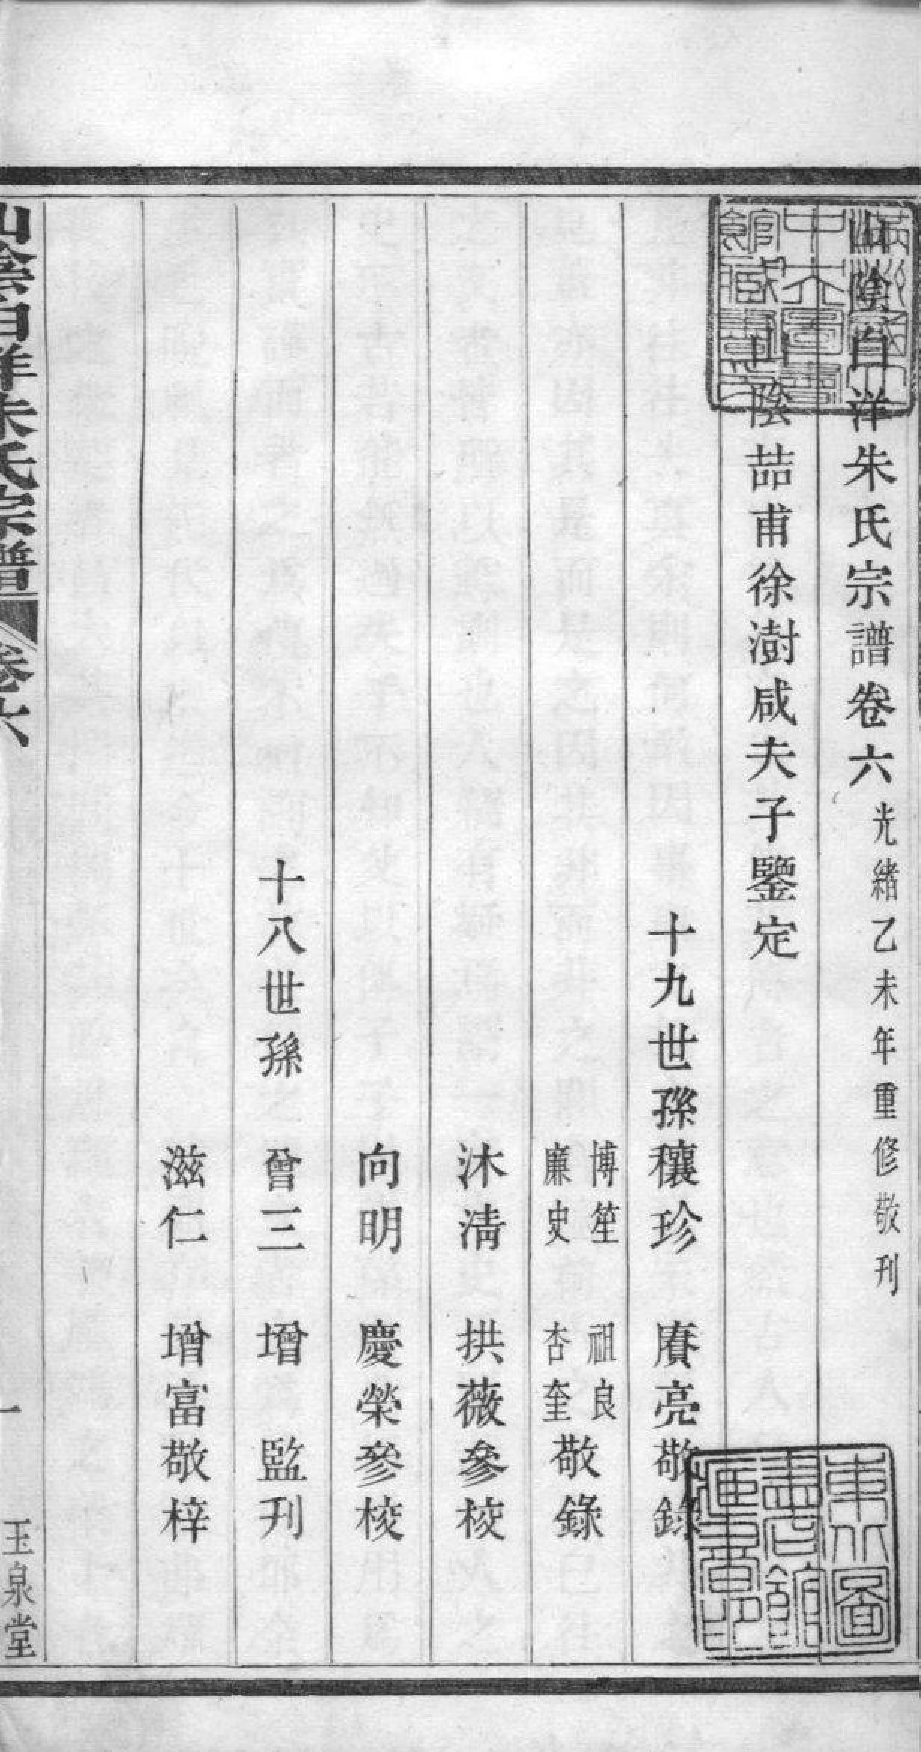 山陰白洋朱氏宗譜卷六 光緒乙未年重修敬刊
山陰喆甫徐澍咸夫子鑒定
十九世孫穰珍 賡亮敬錄
博笙 祖良
廉史 杏奎敬錄
沐清 拱薇參校
向明 慶榮參校
十八世孫 曾三 增 監刋
滋仁 增富敬梓
山陰白洋朱氏宗譜 卷六 一 玉泉堂